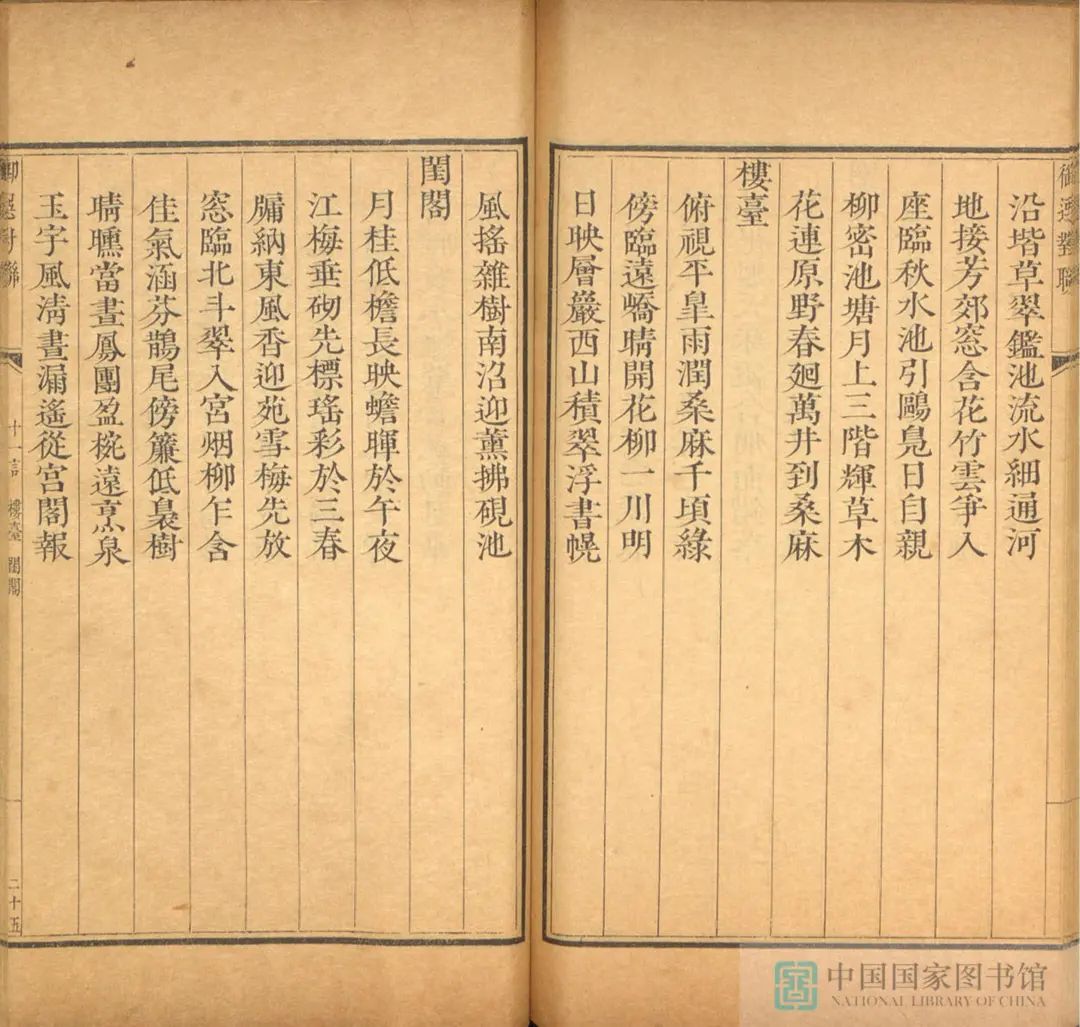 御選對聯
沿堦草翠鑑池流水細通河
地接芳郊窓含花竹雲爭入
座臨秋水池引鷗鳧日自親
柳密池塘月上三階輝草木
花連原野春廻萬井到桑麻
樓臺
俯視平臯雨潤桑麻千頃綠
傍臨遠嶠晴開花柳一川明
日映層巖西山積翠浮書幌
風搖雜樹南沼迎薰拂硯池
閨閣
月桂低檐長映蟾暉於午夜
江梅垂砌先標瑤彩於三春
牖納東風香迎苑雪梅先放
窓臨北斗翠入宮烟柳乍含
佳氣涵芬鵲尾傍簾低裊樹
晴曛當晝鳳團盈椀遠烹泉
玉宇風清晝漏遙從宮閣報
御選對聯
十一言 樓臺 閨閣
二十五
中国国家图书馆
NATIONAL LIBRARY OF CHINA